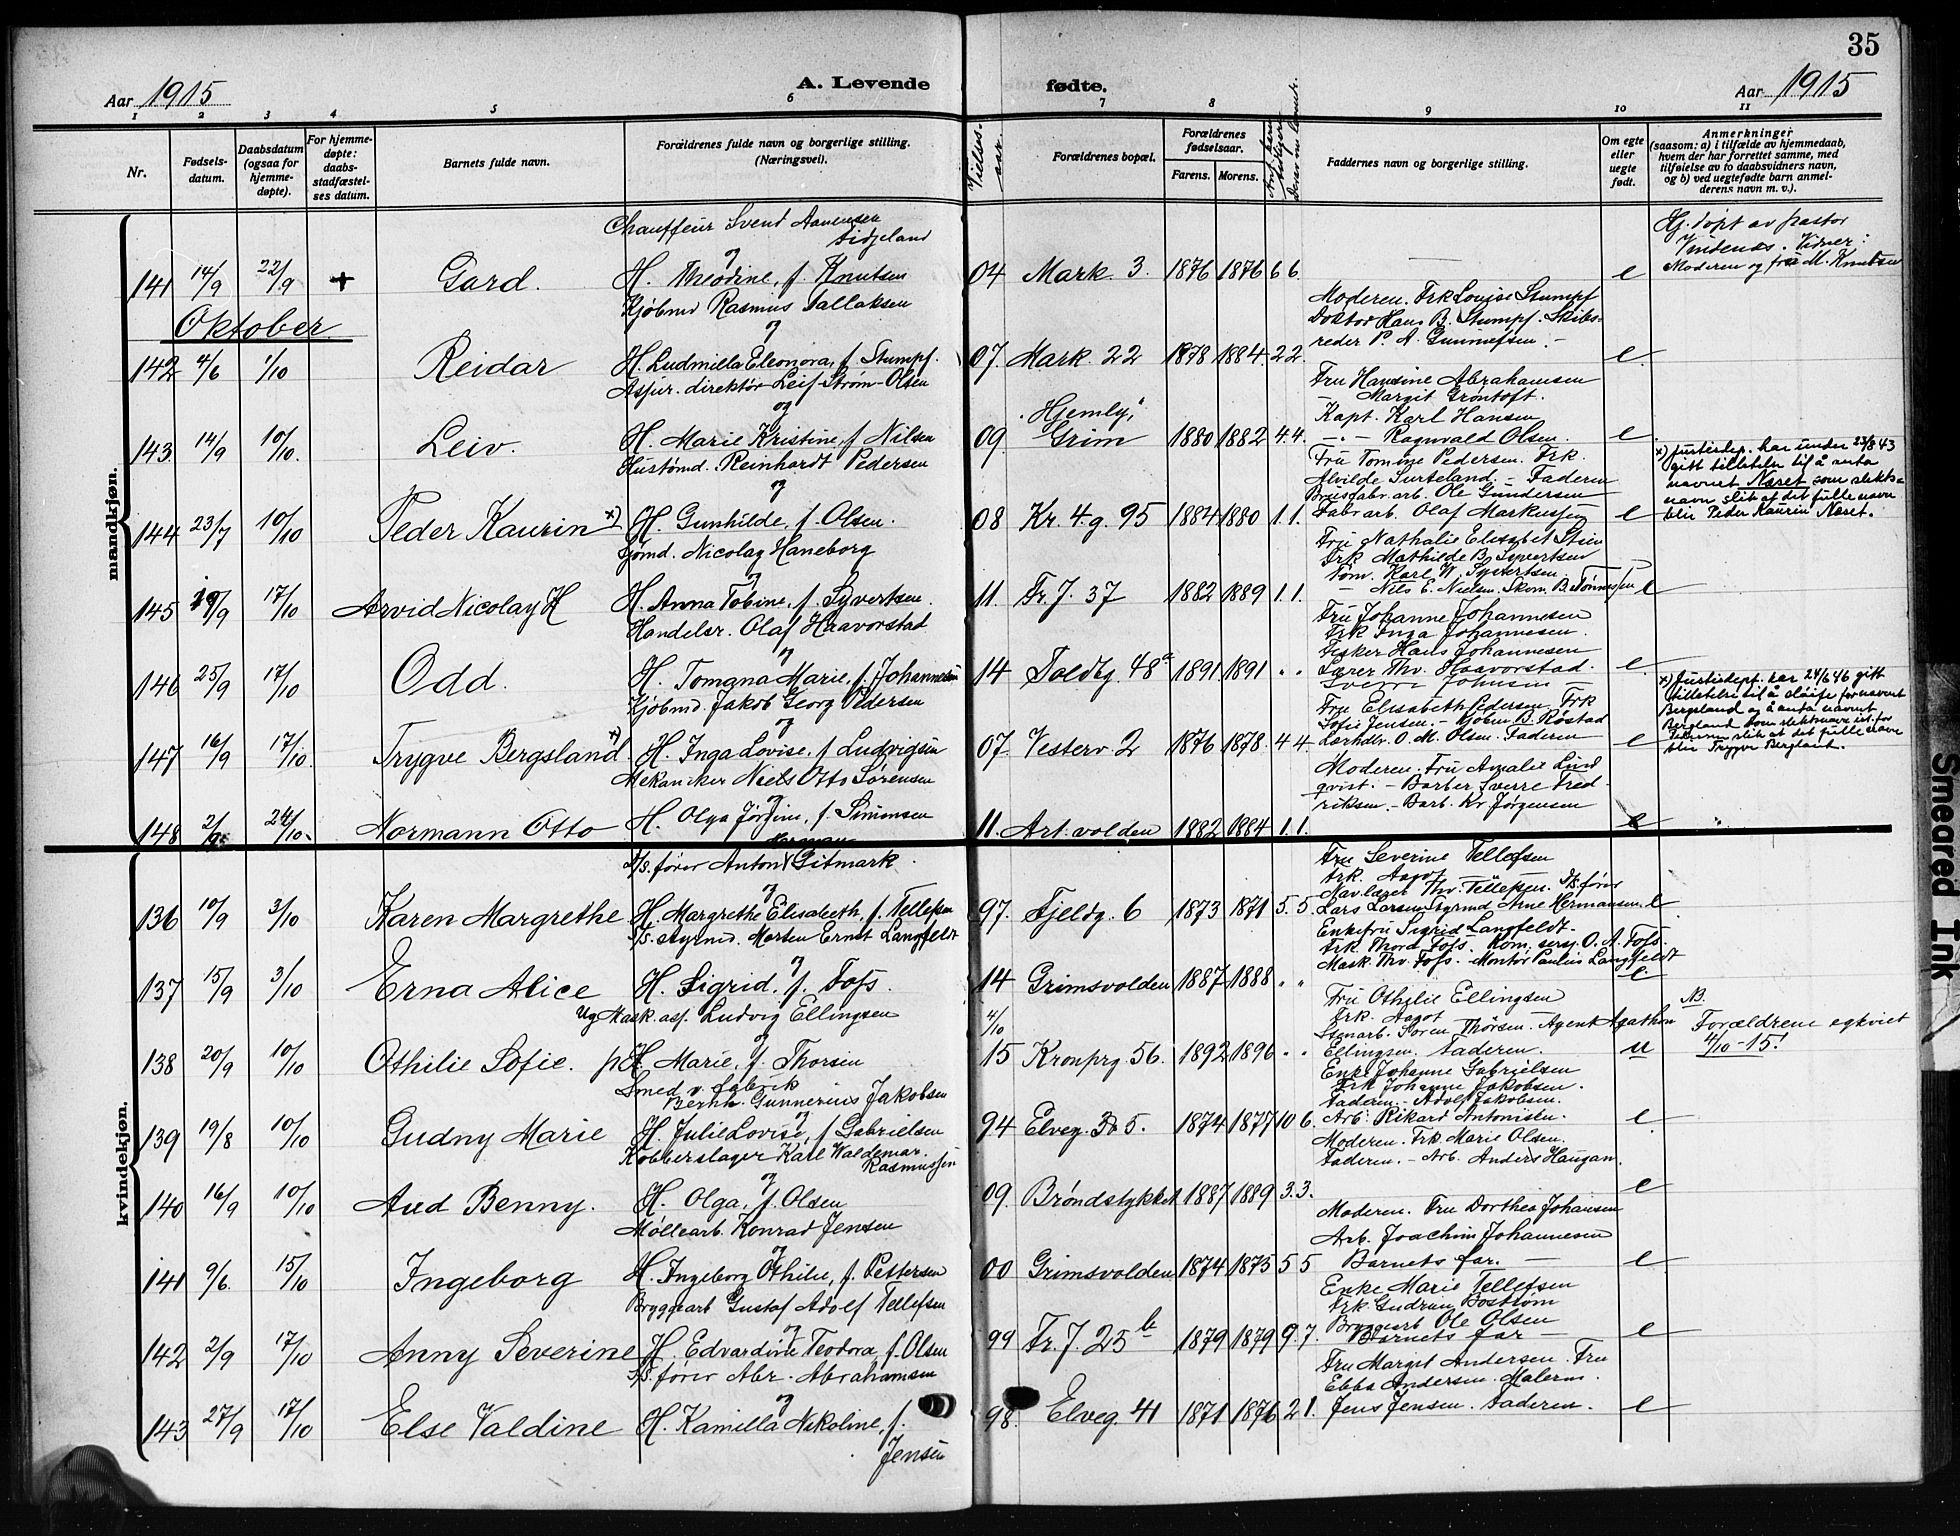 35
Aar 1915
A. Levende fødte.
Aar 1915
1 2 3 4 5 6 7 8 9 10 11
Nr.
Fødsels-
datum.
Daabsdatum
(ogsaa for
hjemme-
døpte).
For hjemme-
døpte:
daabs-
stadfæstel-
ses datum.
Barnets fulde navn.
Forældrenes fulde navn og borgerlige stilling.
(Næringsvei).
Vielses-
aar.
Forældrenes bopæl.
Forældrenes
fødselsaar.
Farens. Morens.
Faddernes navn og borgerlige stilling.
Om egte
eller
uegte
født.
Anmerkninger
(saasom: a) i tilfælde av hjemmedaab,
hvem der har forrettet samme, med
tilføielse av to daabsvidners navn,
og b) ved uegtefødte barn anmel-
derens navn m. v.).
mandkjøn.
Chauffeur Svend Aanensen
Eidjeland
og
141 14/9 22/9 + Gard. H. Theodine, f. Knutsen 04 Mark. 3. 1876 1876 6 6. — e
Hj. døpt av pastor
Vindenes. Vidner:
Moderen og fru M. Knutsen
Oktober.
Kjøbmd Rasmus Tallaksen
og
142 4/6 1/10 Reidar H. Ludmilla Eleonora, f. Stumpf. 07. Mark. 22 1878 1884. 2 2. e
Moderen. Frk Louise Stumpf
Doktor Hans B. Stumpf. Skibs-
reder P. A. Gunnufsen. -
Assur. direktør Leif Strøm-Olsen
og
143. 14/9 10/10. Leiv. H. Marie Kristine, f. Nilsen 09 "Hjemly," Grim 1880 1882 4.4. e
Fru Hansine Abrahamsen
— Margit Grøntoft.
Kapt. Karl Hansen
— . — Ragnvald Olsen.
Hustømd. Reinhardt Pedersen
og
144 23/7 10/10 Peder Kaurin x) H. Gunhilde, f. Olsen. 08 Kr. 4. g. 95 1884 1880 1.1. e
Fru Tomine Pedersen. Frk.
Alvilde Surteland. - Faderen
Brusfabr. arb. Ole Gundersen
Fabr arb. Olaf Markussen
x) Justisdep. har under 23/8 43
gitt tillatelse til å anta
navnet Næret som slekts-
navn slik at det fulle navn
blir Peder Kaurin Næret.
Sjømd. Nicolay Haneborg
og
145 19/9 17/10 Arvid Nicolay H H. Anna Tobine, f. Syvertsen. 11. Fr. J. 37 1882 1889 1.1. e
Fru Nathalie Elisabet Stein
Frk. Mathilde B. Syvertsen
Tøm. Karl W. Syvertsen
— Nils E. Nielsen. Skom. B. Tønnessen
Handelsr. Olaf Haavorstad
og
146 25/9 17/10 Odd. H. Tomana Marie, f. Johannesen 14 Toldbg 48a 1891 1891 " " e
Fru Johanne Johannesen
Frk Inga Johannesen.
Fisker Hans Johannesen
Lærer Thv. Haavorstad.
Sverre Johnsen —
Kjøbmd. Jakob Georg Pedersen
og
147 16/9 17/10. Trygve Bergsland x) H. Inga Lovise, f. Ludvigsen 07. Vesterv. 2 1876 1878. 4 4 e
Fru Elisabeth Pedersen. Frk
Sofie Jensen. - Kjøbm B. Røstad
Lærhdlr. O. M. Olsen. Faderen
x) Justisdept. har 24/6 46 gitt
tillatelse til å sløife fornavnet
Bergsland og å anta navnet
Bergland som slektsnavn ist. for
Pedersen slik at det fulle navn
blir Trygve Bergland.
Mekaniker Niels Otto Sørensen
og
148 2/9. 24/10. Normann Otto H. Olga Jørgine, f. Simonsen 11. Art. volden 1882 1884 1.1. e "
Moderen. Fru Amalie Lind
qvist. - Barber Sverre Fred
riksen. - Barb. Kr Jørgensen
kvindekjøn.
D/S. fører Anton Herman Gitmark.
og
136 10/9 3/10 Karen Margrethe H. Margrethe Elisabeth, f. Tellefsen 97. Fjeldg. 6 1873 1871 5.5. e
Fru Severine Tellefsen
Frk. Aagot —
Nav. lærer Thv. Tellefsen. D/S. fører
Lars Larsen Styrmd Arne Hermansen.
D/S. styrmd. Morten Ernst Langfeldt
og
137 15/9 3/10 Erna Alice H. Sigrid. f. Foss. 14 Grimsvolden 1887 1888 " " e
Enkefru Sigrid Langfeldt.
Frk. Thora Foss. Kom. sersj. O. A. Foss.
Mask. Thv. Foss. - Montør Paulus Langfeldt
Ug Mask. ass. Ludvig Ellingsen
og
138 20/9 10/10 Othilie Sofie. H. Marie, f. Thorsen 4/10 15 Kronprg 56. 1892 1896 " " u
Fru Othilie Ellingsen
Frk. Aagot —
Stenarb. Søren Thorsen. Agent Agathon
Ellingsen. Faderen.
NB.
Forældrene egteviet
4/10-15!
Smed v. fabrik
Bernh. Gunnerius Jakobsen
og
139 19/8 10/10 Gudny Marie H. Julie Lovise, f. Gabrielsen 94 Elveg. 5. 1874 1877 10 6. e
Enke Johanne Gabrielsen
Frk Johanne Jakobsen.
Faderen. - Adolf Jakobsen.
Arb. Rikard Antonisen.
Kobberslager Karl Waldemar
Rasmussen
og
140 16/9 10/10 Aud Benny. H. Olga, f. Olsen 09. Brøndstykket 1887 1889 3.3. e
Moderen. Frk. Marie Olsen.
Faderen. - Arb. Anders Haugan.
Møllearb. Konrad Jensen
og
141 9/6. 15/10 Ingeborg H. Ingeborg Othilie, f. Pettersen 00 Grimsvolden 1874 1875 5 5 e
Moderen. Fru Dorthea Johansen
Arb. Joachim Johannesen
Barnets far. —
Bryggearb Gustaf Adolf Tellefsen
og
142 2/9 17/10 Anny Severine H. Edvardine Teodora, f. Olsen 99 Fr. J. 25b 1879 1879 9.7. e
Enke Marie Tellefsen
Frk. Gudrun Bostrøm
Bryggearb Ole Olsen
Barnets far —
D/S. fører Abr. Abrahamsen
og
143 27/9 17/10 Else Valdine H. Kamilla Nikoline, f.
Jensen
98. Elveg 41 1871 1876 2 1. e
Fru Margit Andersen. Fru
Ebba Andersen. Malerm.
Jens Jensen. Faderen.
Smeared Ink